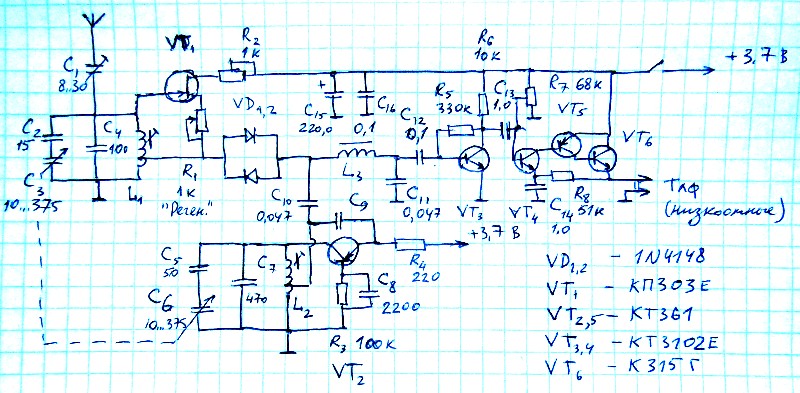 C1
8..30
VT1
R2
1к
R6
10к
+3,7 В
C2
15
C3
10...375
C4
100
L1
R1
1к
"Реген."
VD1,2
+
C15
220,0
C16
0,1
L3
C12
0,1
R5
330к
C13
1,0
R7 68к
VT5
VT6
VT3
VT4
C14
1,0
R8
51к
Тлф
(низкоомные)
C10
0,047
C9
C11
0,047
+3,7 В
C5
50
C6
10...375
C7
470
L2
C8
2200
R4
220
R3 100к
VT2
VD1,2 - 1N4148
VT1 - КП303Е
VT2,5 - КТ361
VT3,4 - КТ3102Е
VT6 - К315Г